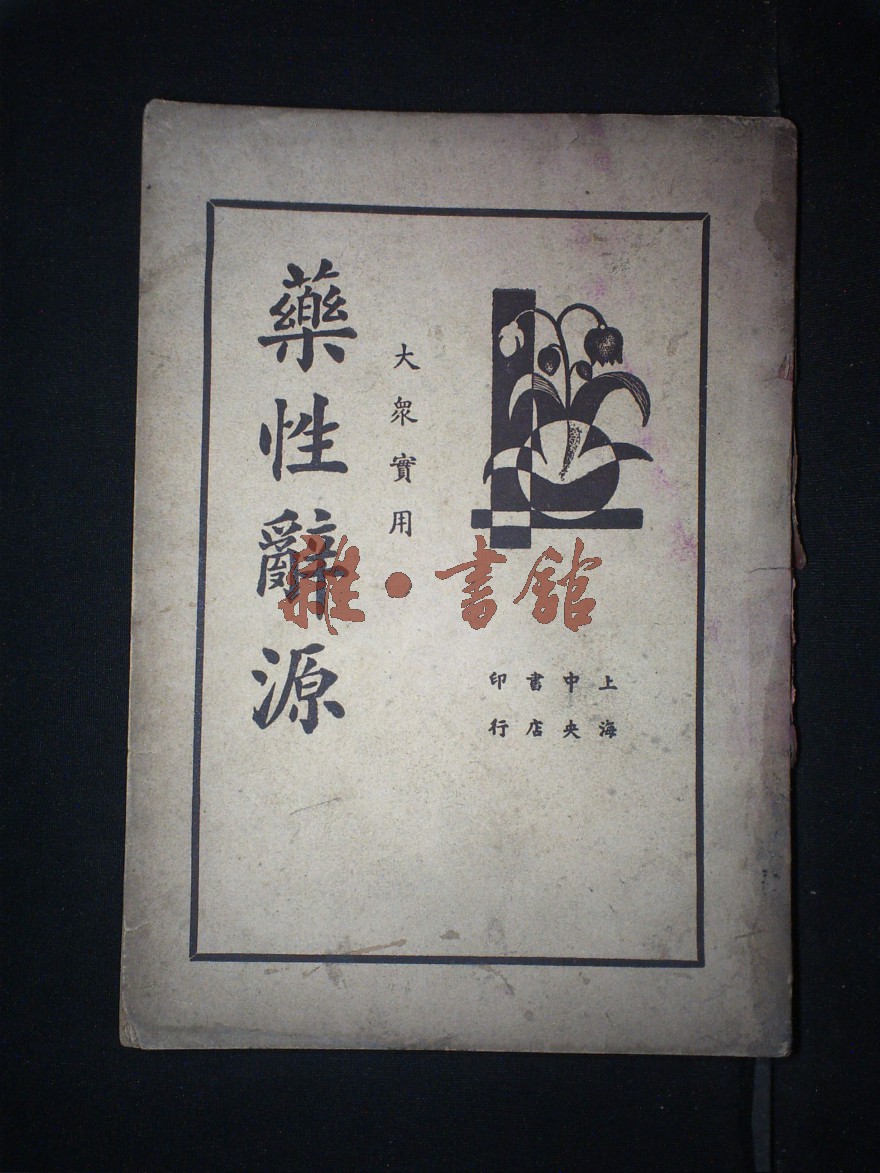 上海
中央
書店
印行
大眾實用
藥性辭源
雜·書舘